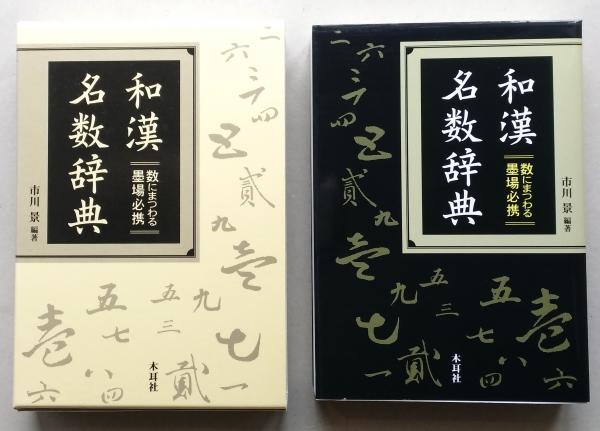 和漢
名数辞典
数にまつわる
墨場必携
市川 景 編著
二
六
三
四
五
貳
九
壱
七
一
五
三
九
五
七
八
四
貳
壱
六
木耳社
和漢
名数辞典
数にまつわる
墨場必携
市川 景 編著
二
六
三
四
五
貳
九
壱
七
一
九
貳
五
三
五
七
八
四
壱
六
木耳社